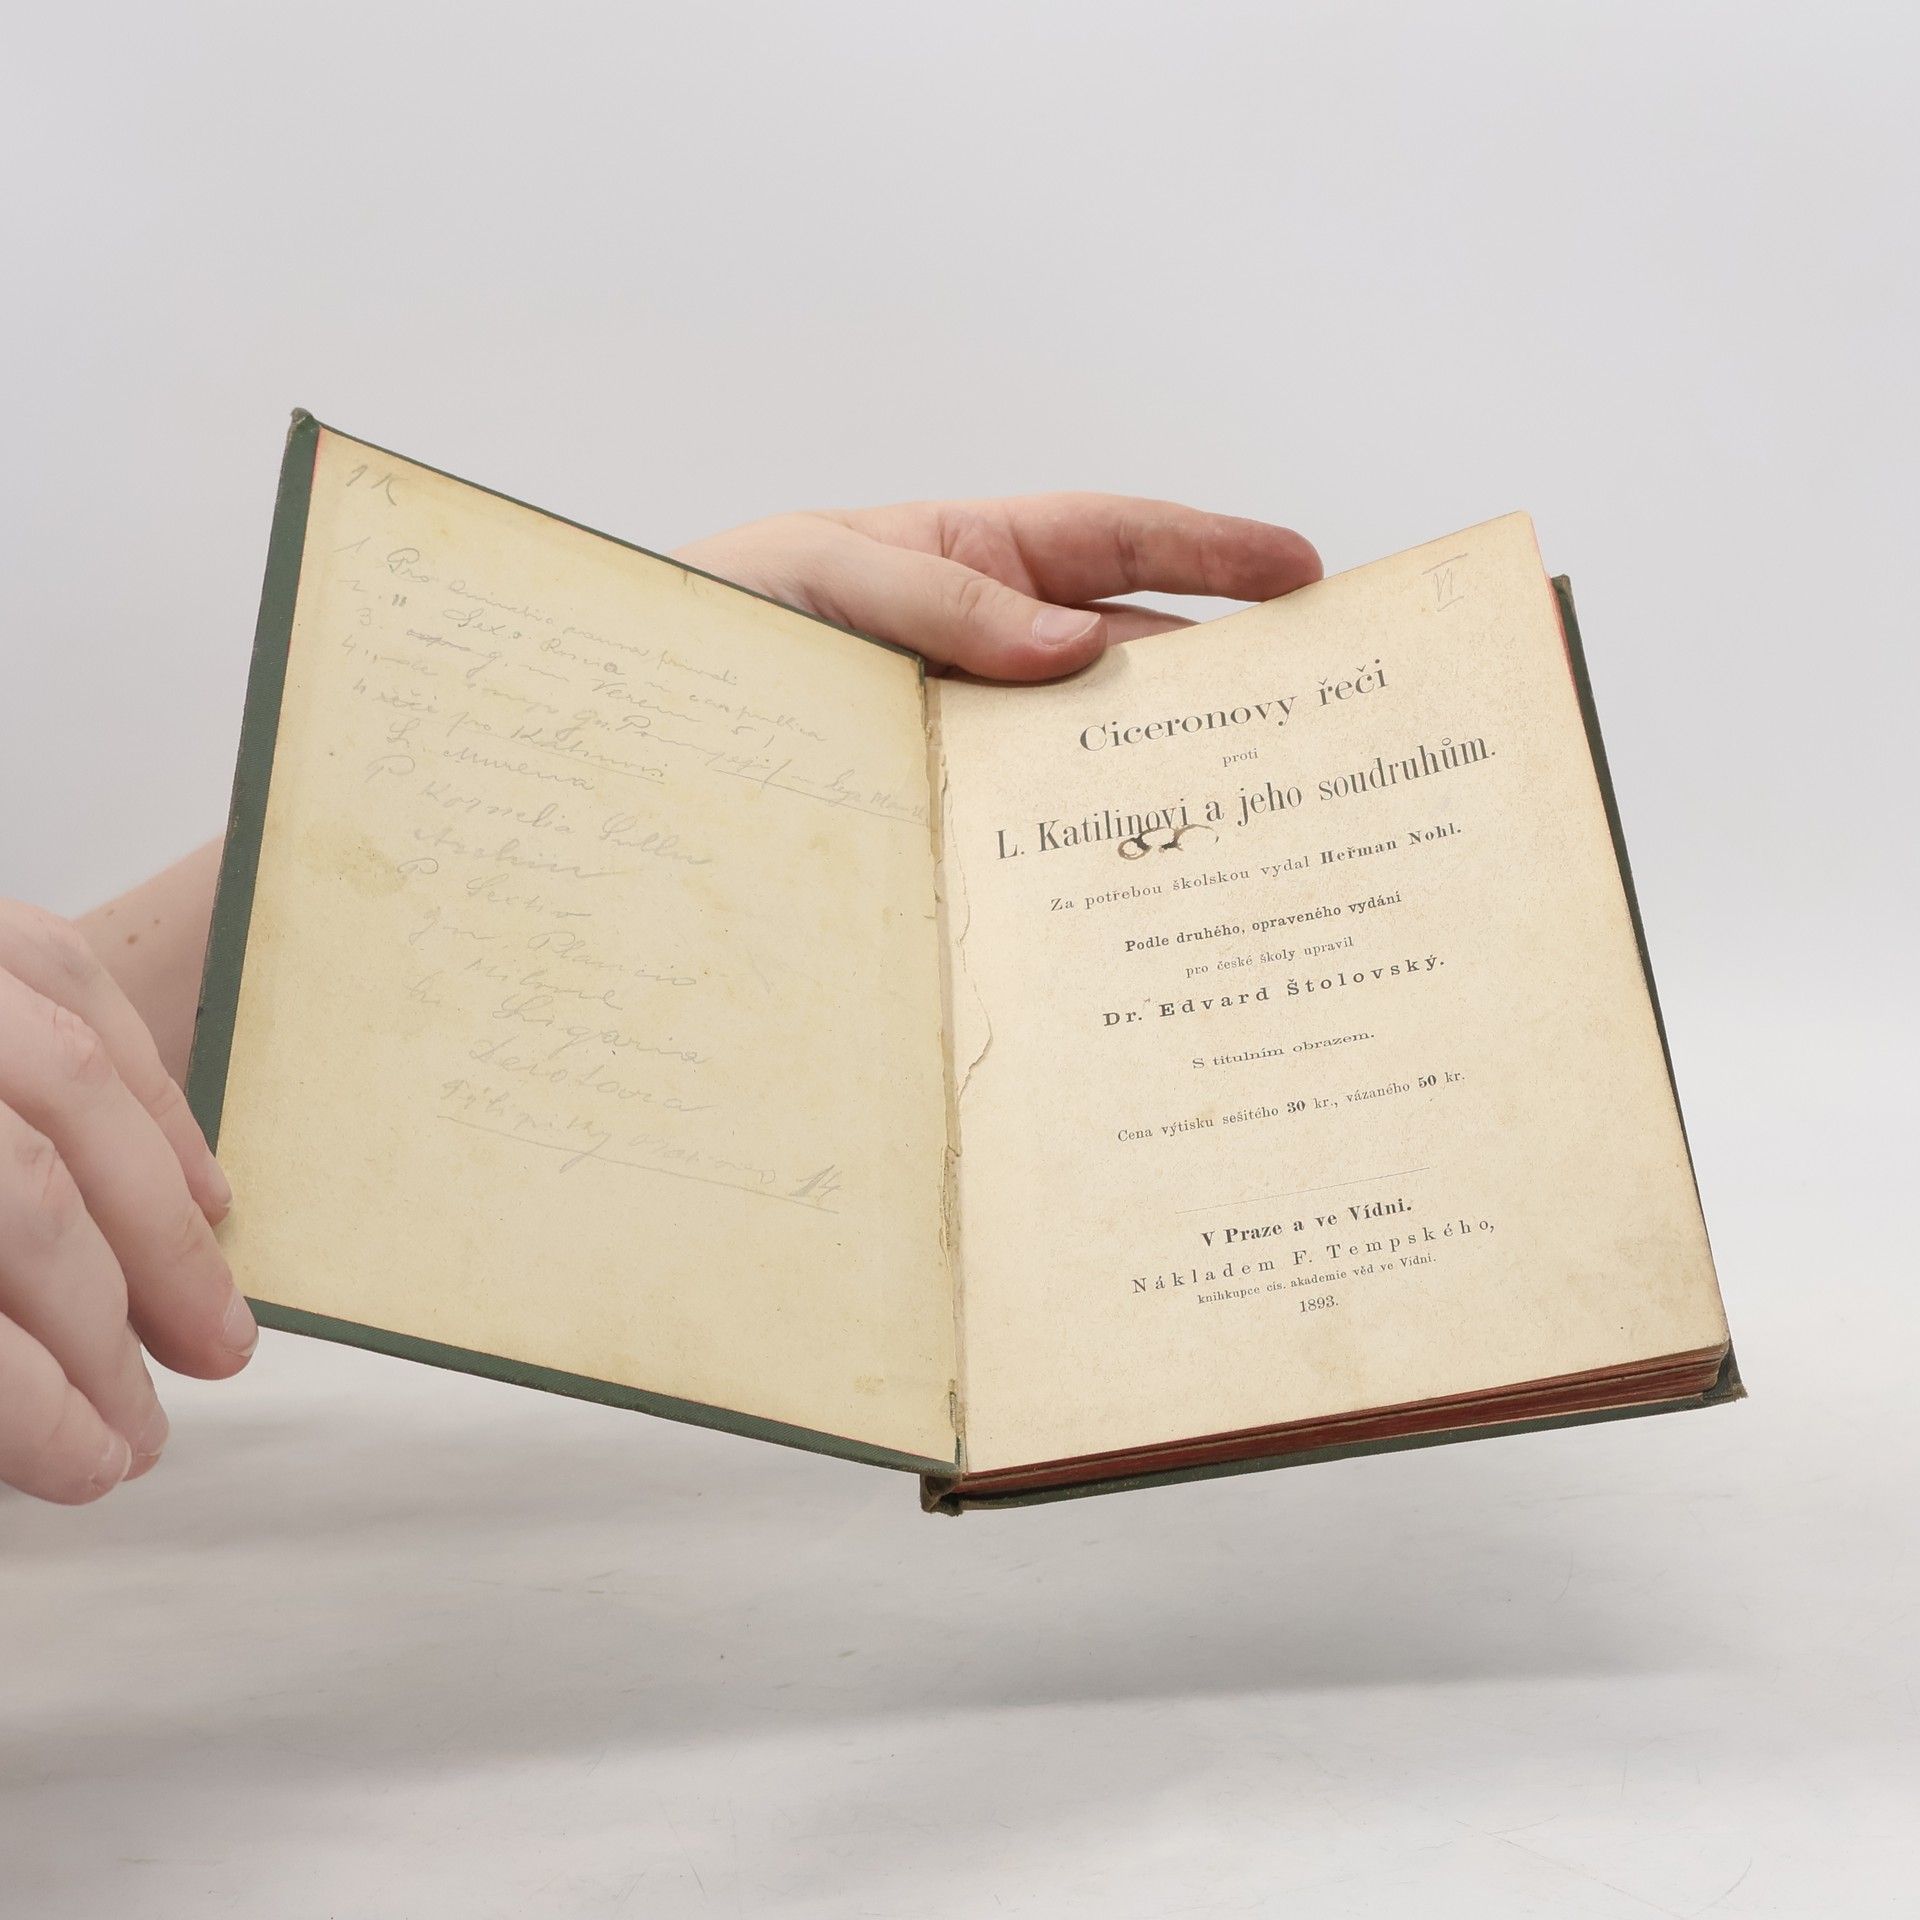 1 K
1 Pro
2. " Sex. o. Roscia
3. Verem 5
4. Gn. Pompeji
4 řeči pro
L. Murena
P Kornelia Sullu
Archia
P Sestio
Gn Plancio
Milone
Ligaria
Deiotara
14
VI
Ciceronovy řeči
proti
L. Katilinovi a jeho soudruhům.
Za potřebou školskou vydal Heřman Nohl.
Podle druhého, opraveného vydání
pro české školy upravil
Dr. Edvard Štolovský.
S titulním obrazem.
Cena výtisku sešitého 30 kr., vázaného 50 kr.
V Praze a ve Vídni.
Nákladem F. Tempského,
knihkupce cís. akademie věd ve Vídni.
1893.